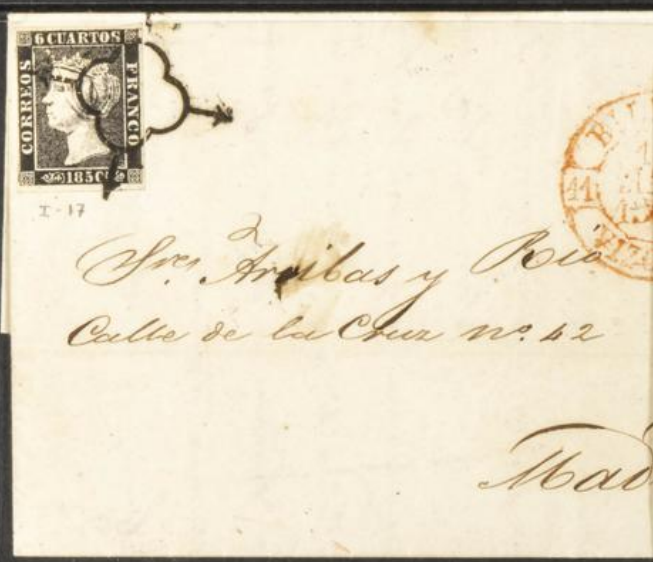 6 CUARTOS
CORREOS
FRANCO
1850
I-17
11
Sres Arribas y Rio
Calle de la Cruz nº. 42
Mad